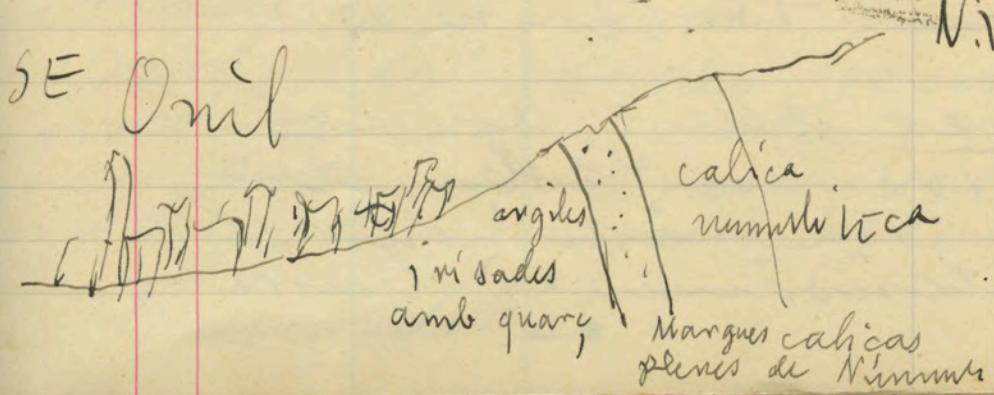 SE Onil
argiles
irisades
amb quarç
calica
nummulitica
Margues calicas
plenes de Nummu